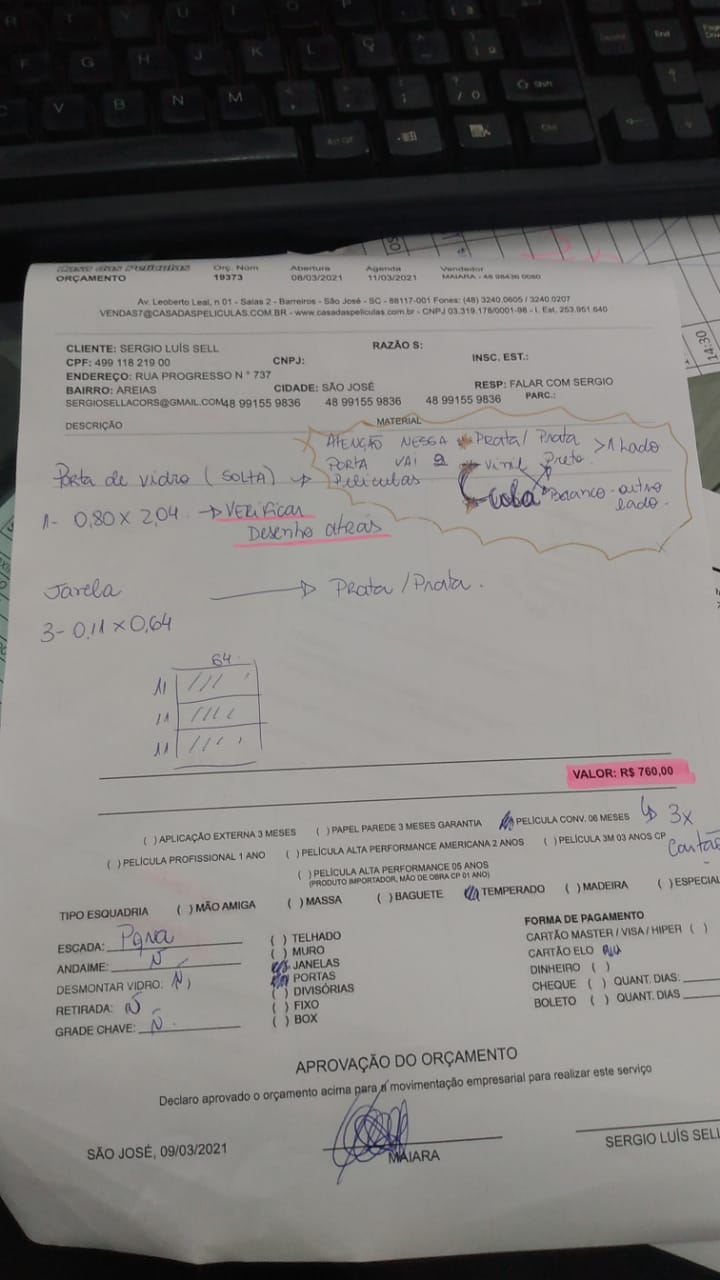 Casa das Películas
ORÇAMENTO
Orç. Núm
19373
Abertura
08/03/2021
Agenda
11/03/2021
Vendedor
MAIARA - 48 98436 0060
Av. Leoberto Leal, n 01 - Salas 2 - Barreiros - São José - SC - 88117-001 Fones: (48) 3240.0605 / 3240.0207
VENDAS7@CASADASPELICULAS.COM.BR - www.casadaspeliculas.com.br - CNPJ 03.319.178/0001-98 - I. Est. 253.951.640
CLIENTE: SERGIO LUÍS SELL
RAZÃO S:
CPF: 499 118 219 00
CNPJ:
INSC. EST.:
ENDEREÇO: RUA PROGRESSO N ° 737
BAIRRO: AREIAS
CIDADE: SÃO JOSÉ
RESP: FALAR COM SERGIO
SERGIOSELLACORS@GMAIL.COM48 99155 9836 48 99155 9836 48 99155 9836
PARC.:
DESCRIÇÃO
MATERIAL
ATENÇÃO NESSA
PORTA VAI 2
Películas
Prata / Prata > 1 Lado
Vinil Preto
Cola Branco - outro
lado.
Porta de vidro (SOLTA) →
1- 0,80 x 2,04 → VERificar
Desenho atras
Janela → Prata / Prata.
3- 0,11 x 0,64
64
11
11
11
VALOR: R$ 760,00
( ) APLICAÇÃO EXTERNA 3 MESES ( ) PAPEL PAREDE 3 MESES GARANTIA PELÍCULA CONV. 06 MESES ↳ 3x
Cartão
( ) PELÍCULA PROFISSIONAL 1 ANO ( ) PELÍCULA ALTA PERFORMANCE AMERICANA 2 ANOS ( ) PELÍCULA 3M 03 ANOS CP
( ) PELÍCULA ALTA PERFORMANCE 05 ANOS
(PRODUTO IMPORTADOR, MÃO DE OBRA CP 01 ANO)
TIPO ESQUADRIA ( ) MÃO AMIGA ( ) MASSA ( ) BAGUETE TEMPERADO ( ) MADEIRA ( ) ESPECIAL
ESCADA:
ANDAIME: Ñ
DESMONTAR VIDRO: Ñ
RETIRADA: Ñ
GRADE CHAVE: Ñ.
( ) TELHADO
( ) MURO
JANELAS
PORTAS
( ) DIVISÓRIAS
( ) FIXO
( ) BOX
FORMA DE PAGAMENTO
CARTÃO MASTER / VISA / HIPER ( )
CARTÃO ELO
DINHEIRO ( )
CHEQUE ( ) QUANT. DIAS:
BOLETO ( ) QUANT. DIAS
APROVAÇÃO DO ORÇAMENTO
Declaro aprovado o orçamento acima para a movimentação empresarial para realizar este serviço
SÃO JOSÉ, 09/03/2021
MAIARA
SERGIO LUÍS SELL
14:30